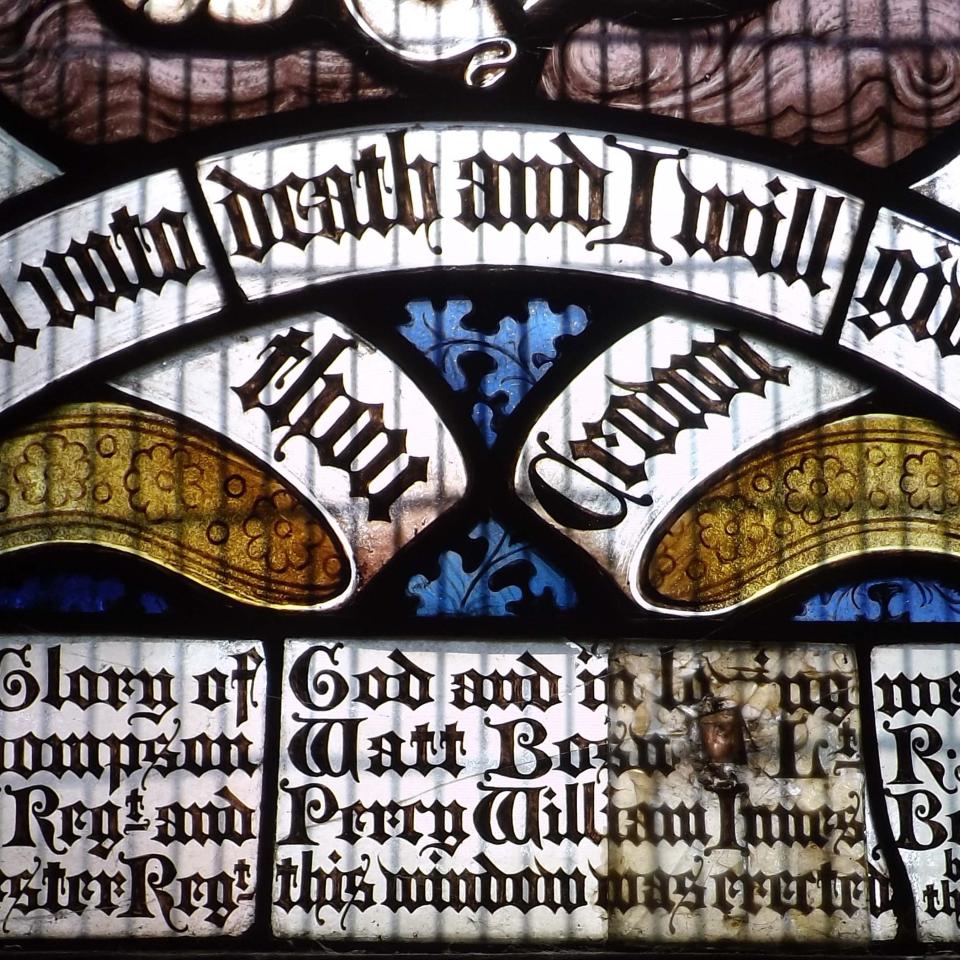 unto death and I will giv
thou
Glory of God and in loving me
ompson Watt Bosw Lt R
Regt and Percy William Innes B
ster Regt this window was erected